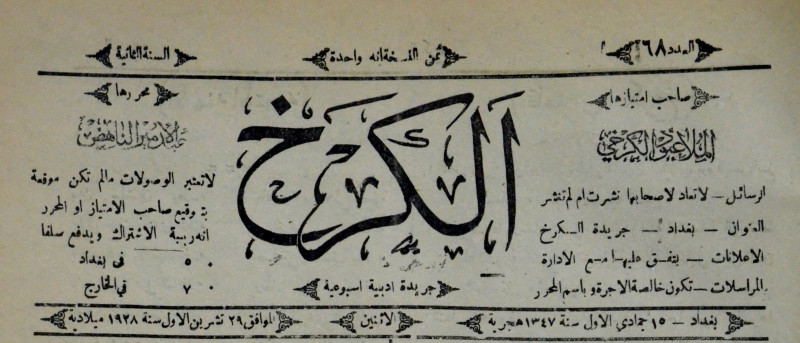 العدد ٦٨
ثمن النسخة انه واحدة
السنة الثانية
صاحب امتيازها
الملا عبود الكرخي
الرسائل — لا تعاد لاصحابها نشرت ام لم تنشر
العنوان — بغداد — جريدة الكرخ
الاعلانات — يتفق عليها مع الادارة
المراسلات — تكون خالصة الاجرة وباسم المحرر
الكرخ
جريدة ادبية اسبوعية
محررها
عبد الامير الناهض
لا تعتبر الوصولات مالم تكن موقعة
بتوقيع صاحب الامتياز او المحرر
الاشتراك ويدفع سلفا
٥٠ فى بغداد
٧٠ في الخارج
بغداد — ١٥ جمادي الاول سنة ١٣٤٧ هجرية
الاثنين
الموافق ٢٩ تشرين الاول سنة ١٩٢٨ ميلادية